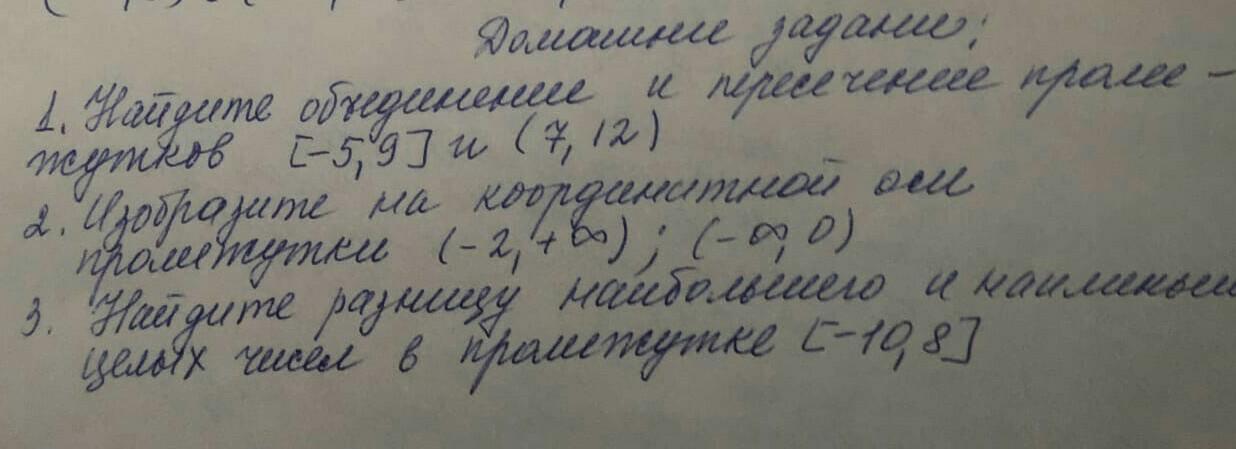 Домашнее задание:
1. Найдите объединение и пересечение проме-
жутков [-5, 9] и (7, 12)
2. Изобразите на координатной оси
промежутки (-2, +∞); (-∞, 0)
3. Найдите разницу наибольшего и наименьш
целых чисел в промежутке [-10, 8]